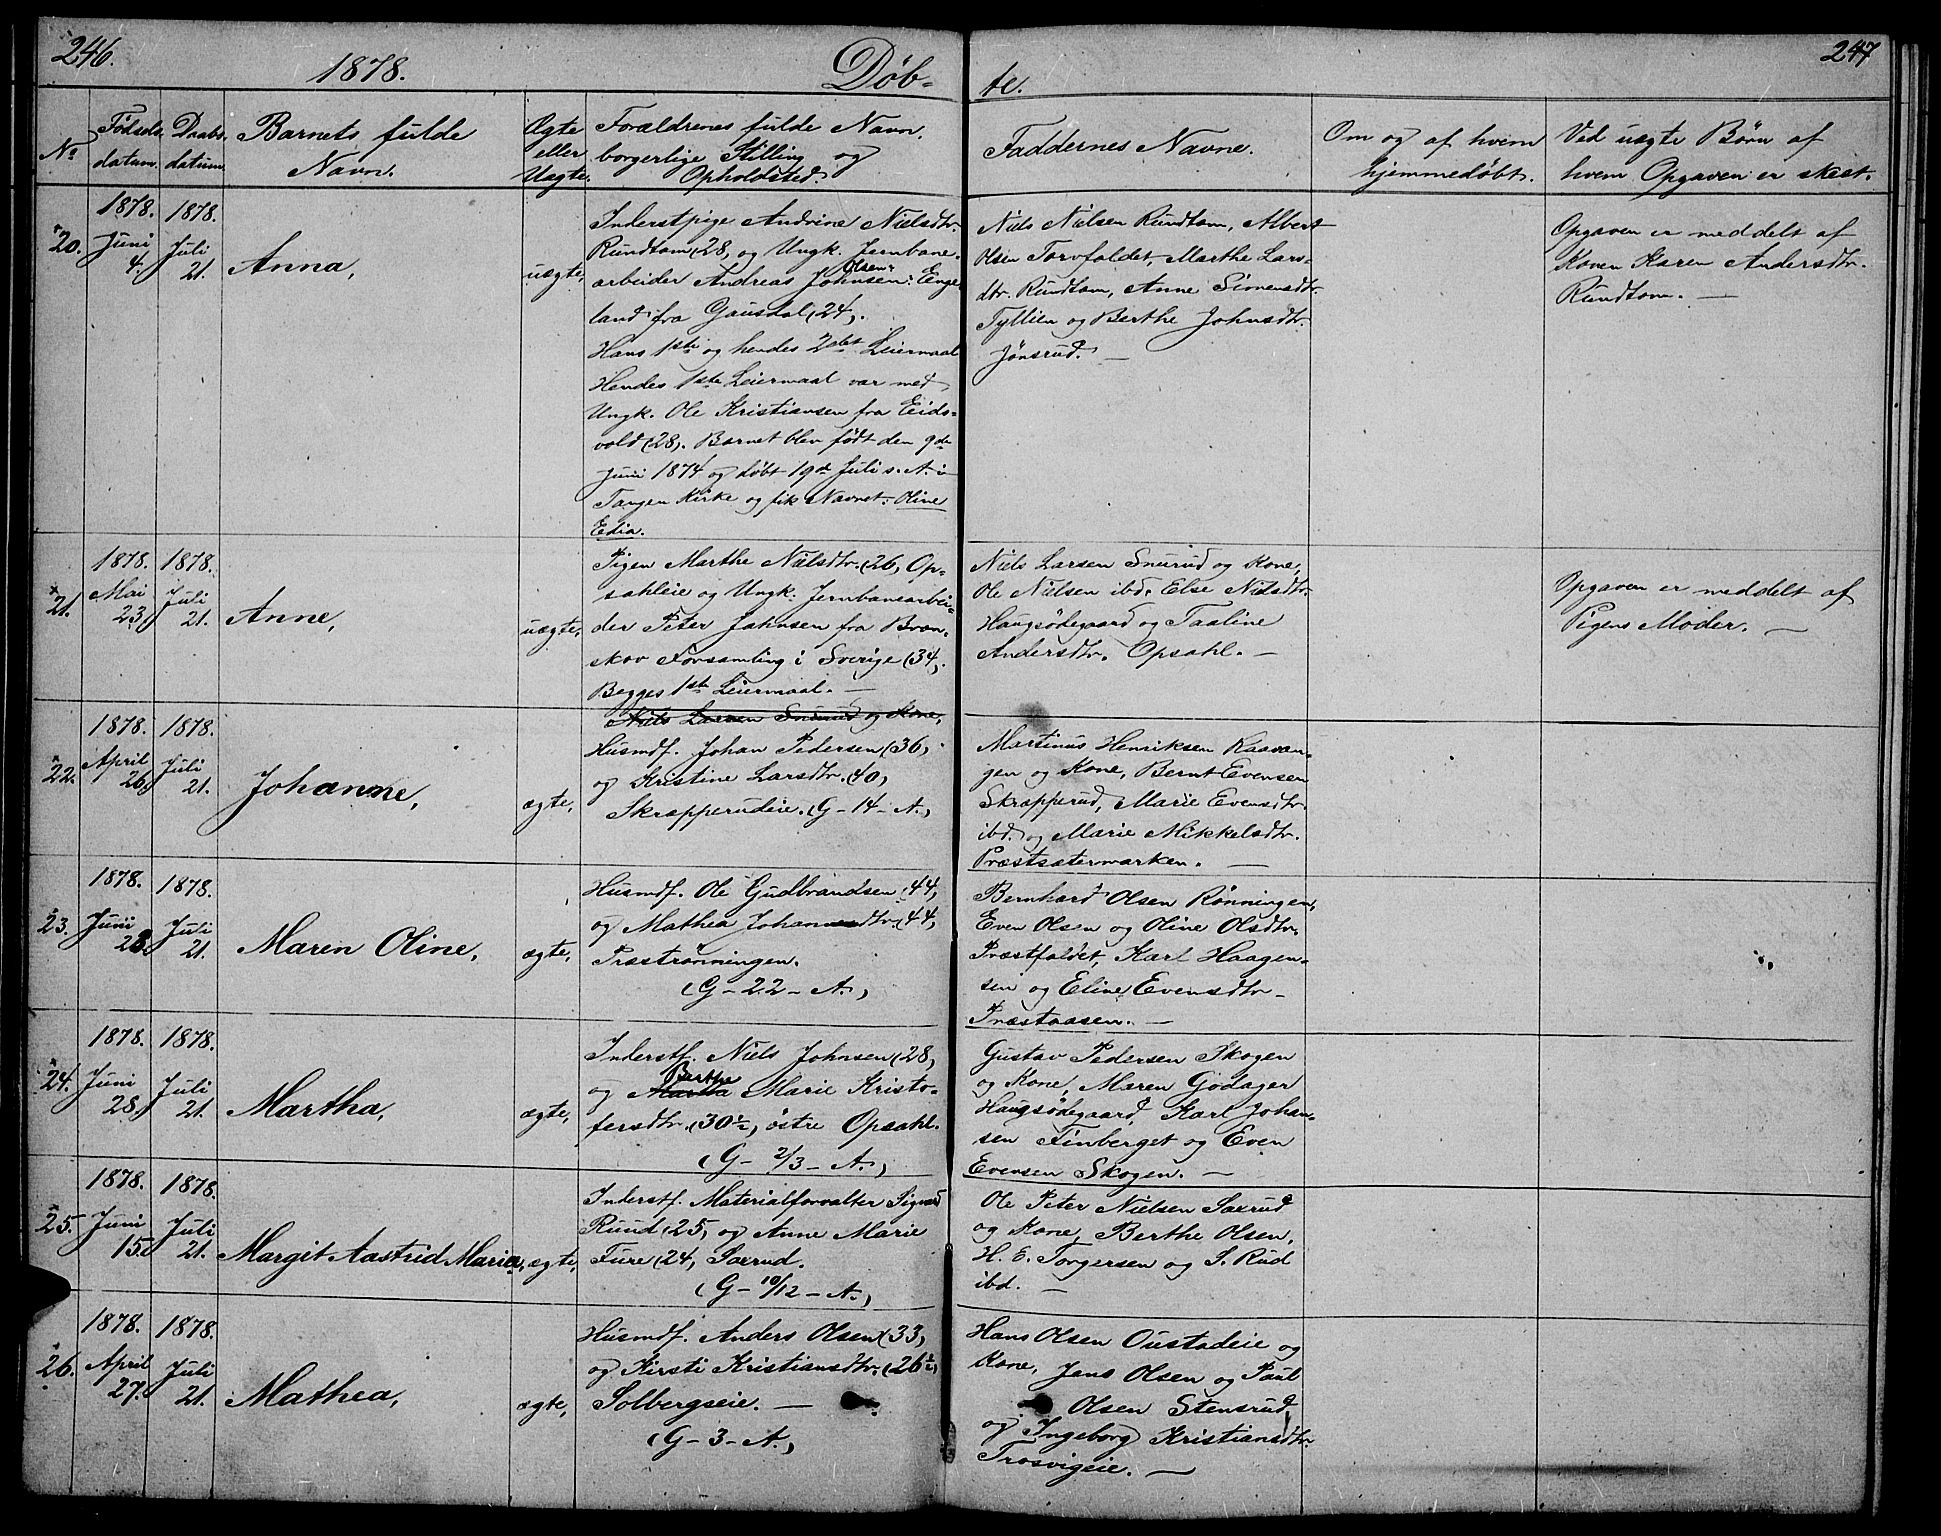 246.
1878.
Döb-
No
Fødsels datum.
Daabs datum
Barnets fulde Navn.
Ægte eller Uægte.
Forældrenes fulde Navn. borgerlige Stilling og Opholdsted.
20.
1878. Juni 4.
1878. Juli 21.
Anna,
uægte,
Inderstpige Andrine Nielsdtr.
Rundtom (28, og Ungk. Jernbane-
Olsen
arbeider Andreas Johnsen: Enge
land fra Gausdal (24,.
Hans 1ste og hendes 2det Leiermaal
Hendes 1ste Leiermaal var med
Ungk. Ole Kristiansen fra Eids-
vold (28). Barnet blev født den 9de
Juni 1874 og døbt 19de Juli s. A. i
Tangen Kirke og fik Navnet: Oline
Edia.
21.
1878. Mai 23,
1878. Juli 21.
Anne,
uægte,
Pigen Marthe Nielsdtr. (26, Op-
sahleie og Ungk: Jernbanearbei-
der Peter Jahnsen fra
skov Forsamling i Sverige (34,.
Begges 1ste Leiermaal. —
22.
1878. April 26,
1878. Juli 21.
Johanne,
ægte,
Niels Larsen Snurud og Kone,
Husmdf. Johan Pedersen (36,
og Kristine Larsdtr. (40,
Skrapperudeie. (G-14-A.)
23.
1878. Juni 28.
1878. Juli 21.
Maren Oline,
ægte,
Husmdf. Ole Gudbrandsen (44,
og Mathea Johannesdtr. (44,
Præstrønningen.
(G-22-A.)
24.
1878. Juni 28.
1878. Juli 21.
Martha,
ægte,
Inderstf. Niels Johnsen (28,
Berthe
og Martha Marie Kristo-
fersdtr. (30½, östre Opsahl.
(G- 2/3 -A.)
25.
1878. Juni 15.
1878. Juli 21.
Margit Aastrid Maria,
ægte,
Inderstf. Materialforvalter Sigvard
Ruud (25, og Anne Marie
Fure (24, Saxrud.
(G- 10/12 -A.)
26.
1878. April 27.
1878. Juli 21.
Mathea,
ægte,
Husmdf. Anders Olsen (33,
og Kirsti Kristiansdtr. (26½,
Solbergseie. —
(G-3-A.)
247
te.
Faddernes Navne.
Om og af hvem hjemmedøbt.
Ved uægte Børn af hvem Opgaven er skeet.
Niels Nielsen Rundtom, Albert
Olsen Torvfaldet, Marthe Lars-
dtr. Rundtom, Anne Simensdtr.
Tyllien og Berthe Johnsdtr.
Jönsrud. —
Opgaven er meddelt af
Konen Karen Andersdtr.
Rundtom. —
Niels Larsen Snurud og Kone,
Ole Nielsen ibd. Else Nielsdtr.
Haugsödegaard og Taaline
Andersdtr. Opsahl. —
Opgaven er meddelt af
Pigens Moder. —
Martinus Henriksen Kaavan-
gen og Kone, Bernt Evensen
Skrapperud, Marie Evensdtr.
ibd. og Marie Mikkelsdtr.
Præstsætermarken. —
Bernhard Olsen Rönningen,
Even Olsen og Oline Olsdtr.
Præstfaldet, Karl Haagen-
sen og Eline Evensdtr.
Præstaasen. —
Gustav Pedersen Skogen
og Kone, Maren Godager
Haugsödegaard, Karl Johan-
sen Finberget og Even
Evensen Skogen. —
Ole Peter Nielsen Saxrud
og Kone, Berthe Olsen,
H. E. Torgersen og S. Rud
ibd. —
Hans Olsen Oustadeie og
Kone, Jens Olsen og Paul
Olsen Stensrud,
og Ingeborg Kristiansdtr.
Trosvigeie. —